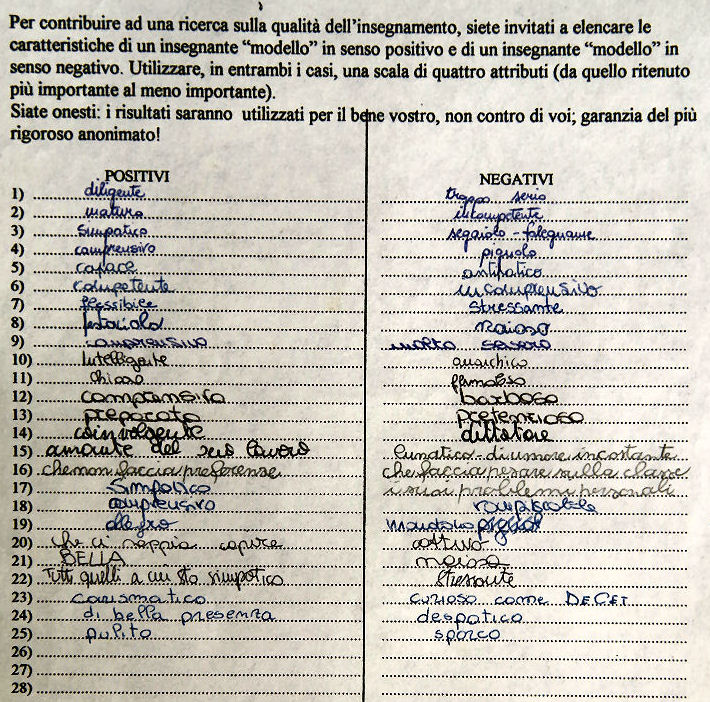 Per contribuire ad una ricerca sulla qualità dell'insegnamento, siete invitati a elencare le
caratteristiche di un insegnante “modello” in senso positivo e di un insegnante “modello” in
senso negativo. Utilizzare, in entrambi i casi, una scala di quattro attributi (da quello ritenuto
più importante al meno importante).
Siate onesti: i risultati saranno utilizzati per il bene vostro, non contro di voi; garanzia del più
rigoroso anonimato!
POSITIVI NEGATIVI
1) diligente troppo serio
2) maturo incompetente
3) simpatico segaiolo - falegname
4) comprensivo pignolo
5) capace antipatico
6) competente incomprensivo
7) flessibile stressante
8) noioso
9) comprensivo molto severo
10) Intelligente anarchico
11) chiaro
12) comprensivo barboso
13) preparato pretenzioso
14) coinvolgente dittatore
15) amante del suo lavoro lunatico di umore incostante
16) che non faccia preferenze che faccia pesare sulla classe
i suoi problemi personali
17) Simpatico
18) comprensivo
19) allegro
20) che ci sappia capire cattivo
21) BELLA noioso
22) Tutti quelli a cui sto simpatico stressante
23) carismatico curioso come DECET
24) di bella presenza despotico
25) pulito sporco
26)
27)
28)